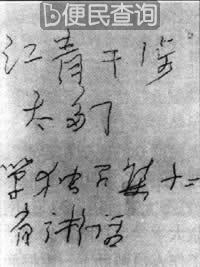 便民查询
江青干涉
太多了
单独召集十二
省讲话